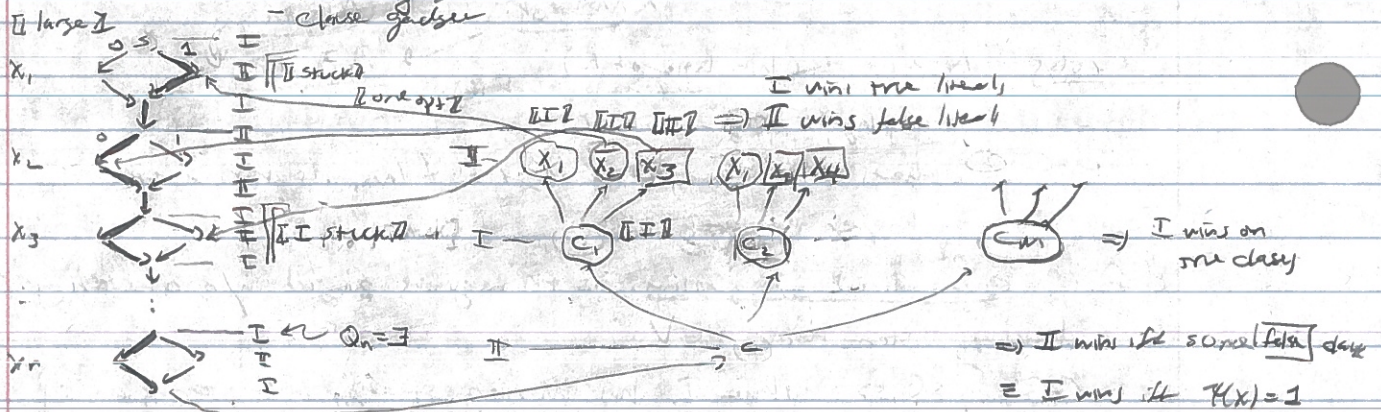 [[large]]
- clause gadget
0 s 1 I
X₁ II [[II stuck]]
I
[[one opt]]
I wins true literals
0 1 II
[[I]] [[I]] [[II]] ⇒ II wins false literals
X₂ I
II
II X₁ X̄₂ X₃ X₁ X₃ X₄
I
X₃ II [[I stuck]]
I
I C₁ [[I]] C₂ Cm ⇒ I wins on
true clauses
⋮
I ← Qn = ∃
Xn II
I
II C
⇒ II wins iff some false clause
≡ I wins iff Ψ(x) = 1